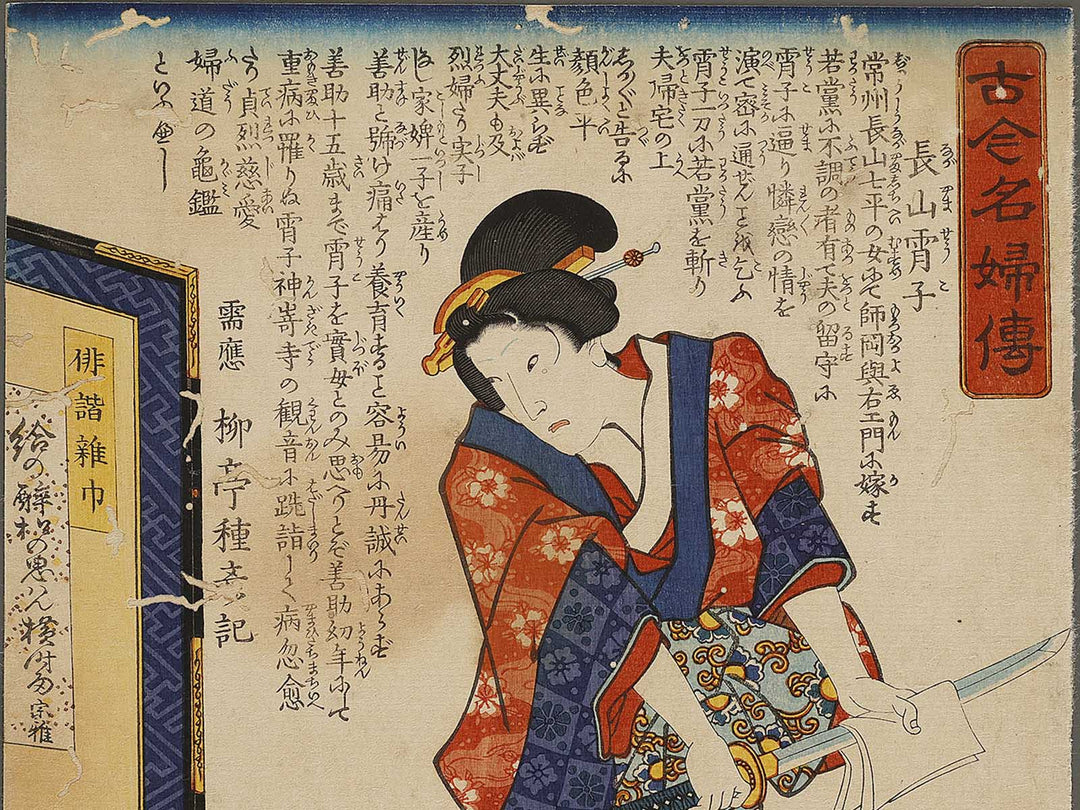 古今名婦傳
長山霄子
常州長山七平の女にて師岡與右エ門に嫁す
若黨に不調の者有て夫の留守に
霄子に逼り憐戀の情を
演て密に通せんことを乞ふ
霄子一刀に若黨を斬り
夫帰宅の上
しか／″＼と告るに
顔色平
生に異らず
大丈夫も及
烈婦たり実子
なし家婢一子を産り
善助と號け痛はり養育すること容易に丹誠にあらず
善助十五歳まで霄子を實母とのみ思へりとぞ善助幼年にして
重病に罹りぬ霄子神嵜寺の観音に跣詣して病忽愈
たり貞烈慈愛
婦道の龜鑑
といふべし
需應 柳亭種彦記
俳諧雑巾
給の酔
宗雅